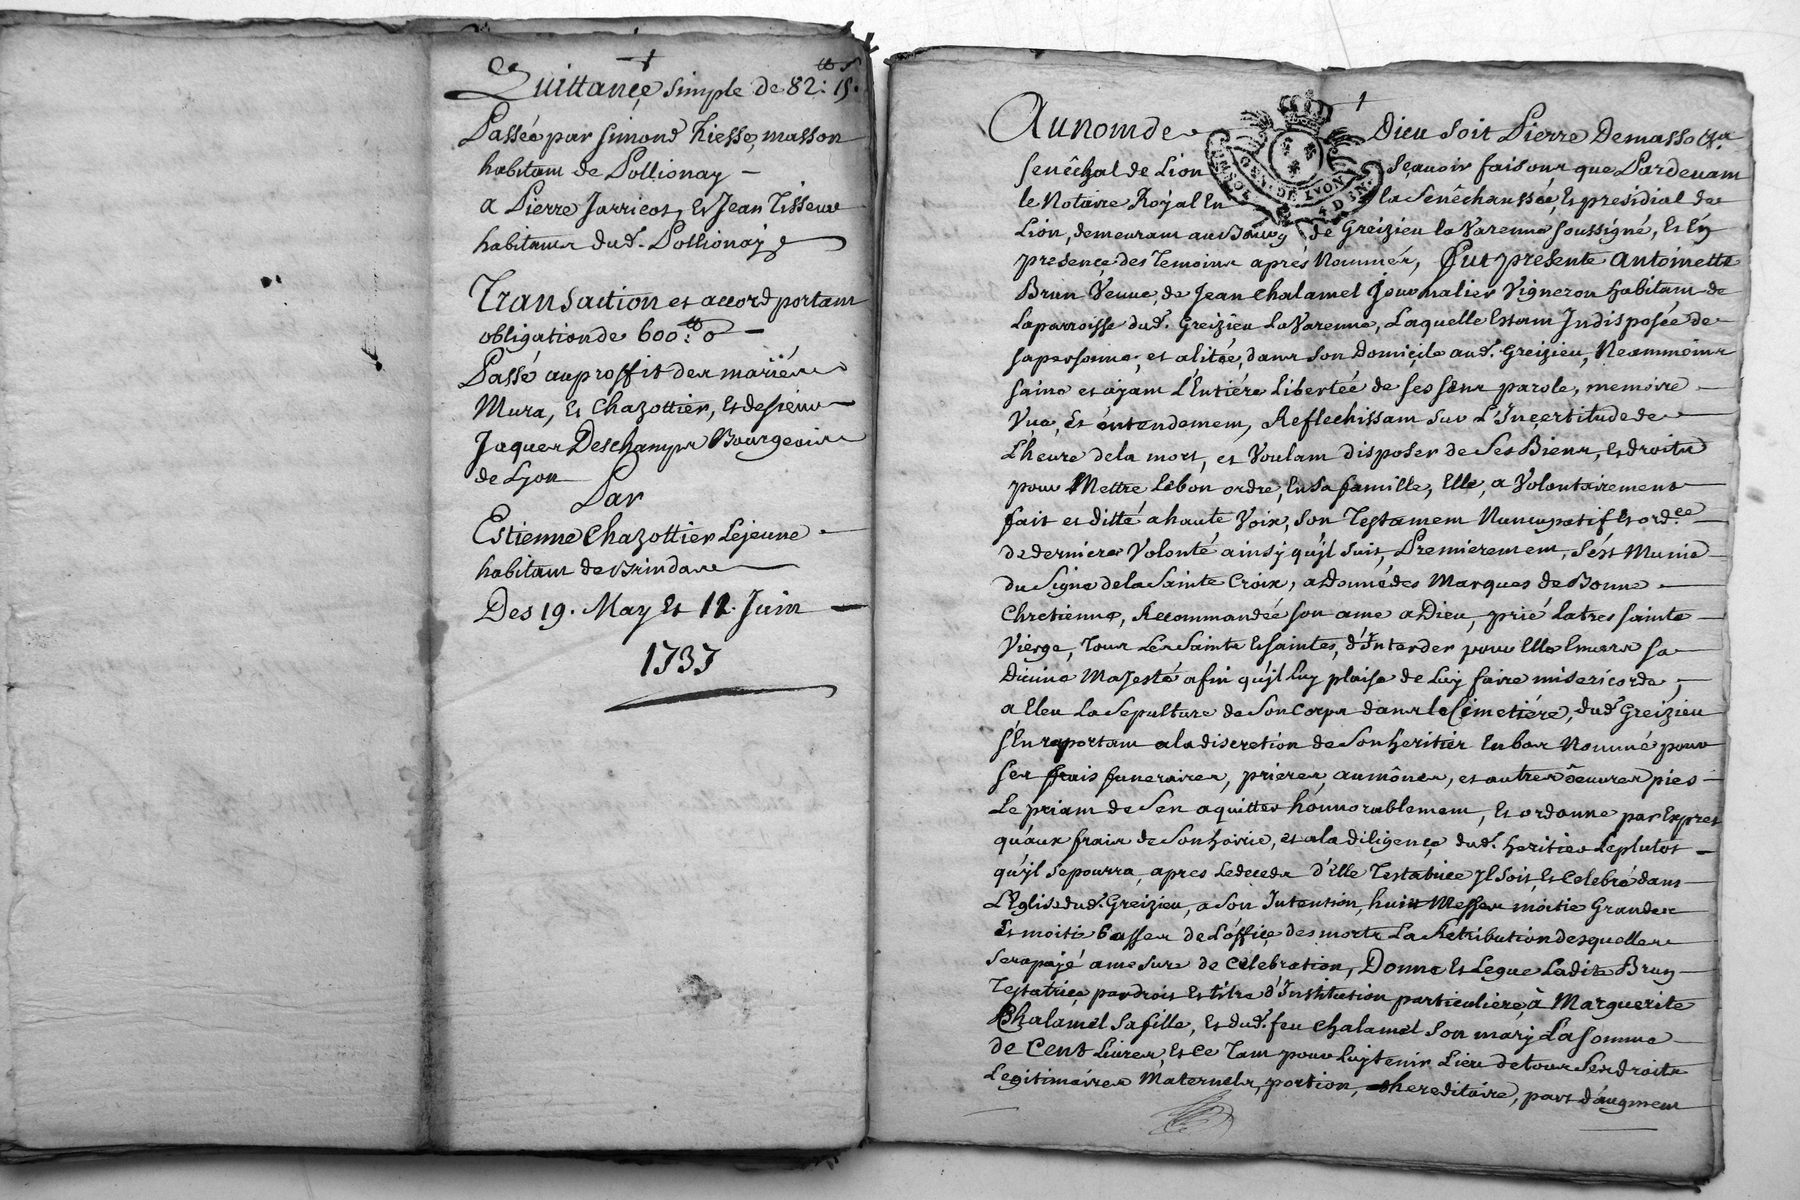 Quittance simple de 82:ᵗᵗ 15.ˢ
Passée par Simond Tiesse, masson
habitant de Pollionay –
a Pierre Jarricot, et Jean Tisseur
habitans dud. Pollionay
Transaction et accord portant
obligation de 600:ᵗᵗ 0 –
Passé au proffit des mariés
Mura, et Chazottier, et de sieur
Jaques Deschamps Bourgeois
de Lyon
Par
Estienne Chazottier Lejeune
habitant de Brindas
Des 19. May et 12. Juin
1737
Au nom de Dieu soit Pierre Demasso &a.
senêchal de Lion sçavoir faisons que Pardevant
le Notaire Royal En la Senêchaussée, et presidial de
Lion, demeurant au Bourg de Greizieu la Varenne soussigné, et En
presence des Temoins aprés Nommés, fut presente Antoinette
Brun Veuve, de Jean Chalamel Journalier Vigneron habitant de
la parroisse dud. Greizieu La Varenne, Laquelle Estant Indisposée de
sa personne, et alitée, dans son Domicile aud. Greizieu, Neammoins
saine et ayant L'Entiére Libertée de ses sens parole, memoire
Vue, et entendement, Reflechissant sur L'Inçertitude de
L'heure de la mort, et Voulant disposer de Ses Biens, et droits
pour Mettre Le bon ordre, En sa famille, Elle, a Volontairement
fait et ditté a haute Voix, son Testament Nuncupatif et ord.ce
de derniere Volonté ainsy qu'jl suit, Premierement, S'est Munie
du Signe de la Sainte Croix, a donné des Marques de Bonne
Chretienne, Recommandée son ame a Dieu, prié La tres sainte
Vierge, Tous Les Saints Et saintes, d'Interder pour Elle Envers sa
Divine Majesté afin qu'jl Luy plaise de Luy faire misericorde,
a Eleu La Sepulture de Son Corps dans le Cimetiére, dud. Greizieu
s'En raportant a la discretion de Son heritier En bas Nommé pour
ses frais funeraires, prieres aumônes, et autres œuvres pies
Le priant de S'en aquitter honnorablement, Et ordonne par Expres
qu'aux frais de Son hoirie, et a la diligençe dud. heritier Le plutot
qu'jl se pourra, apres Le deceds d'Elle Testatrice Jl soit, Et Celebré dans
L'Eglise dud. Greizieu, a Son Intention, huit Messes moitie Grandes
Et moitie basses de L'offiçe des morts La Retribution desquelles
sera payé a mesure de Celebration, Donne Et Legue Ladite Brun
Testatrice par droit Et titre d'Institution particuliere, à Marguerite
Chalamel Sa fille, Et dud. feu Chalamel Son mary La Somme
de Cent Livres, Et Ce Tant pour Luy tenir Lieu de tous Ses droits
Legitimaires Maternels, portion, hereditaire, part d'augment